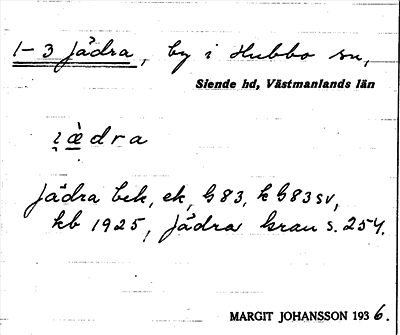 1–3 Jädra, by i Hubbo sn,
Siende hd, Västmanlands län
i̯æ̀dra
Jädra bek, ek, G83, k G83 sv,
kb 1925, Jädra Gran s. 254.
MARGIT JOHANSSON 1936.